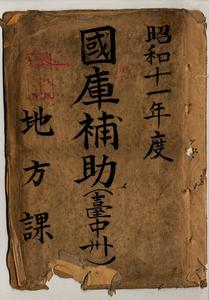 昭和十一年度
國庫補助(臺中州)
地方課